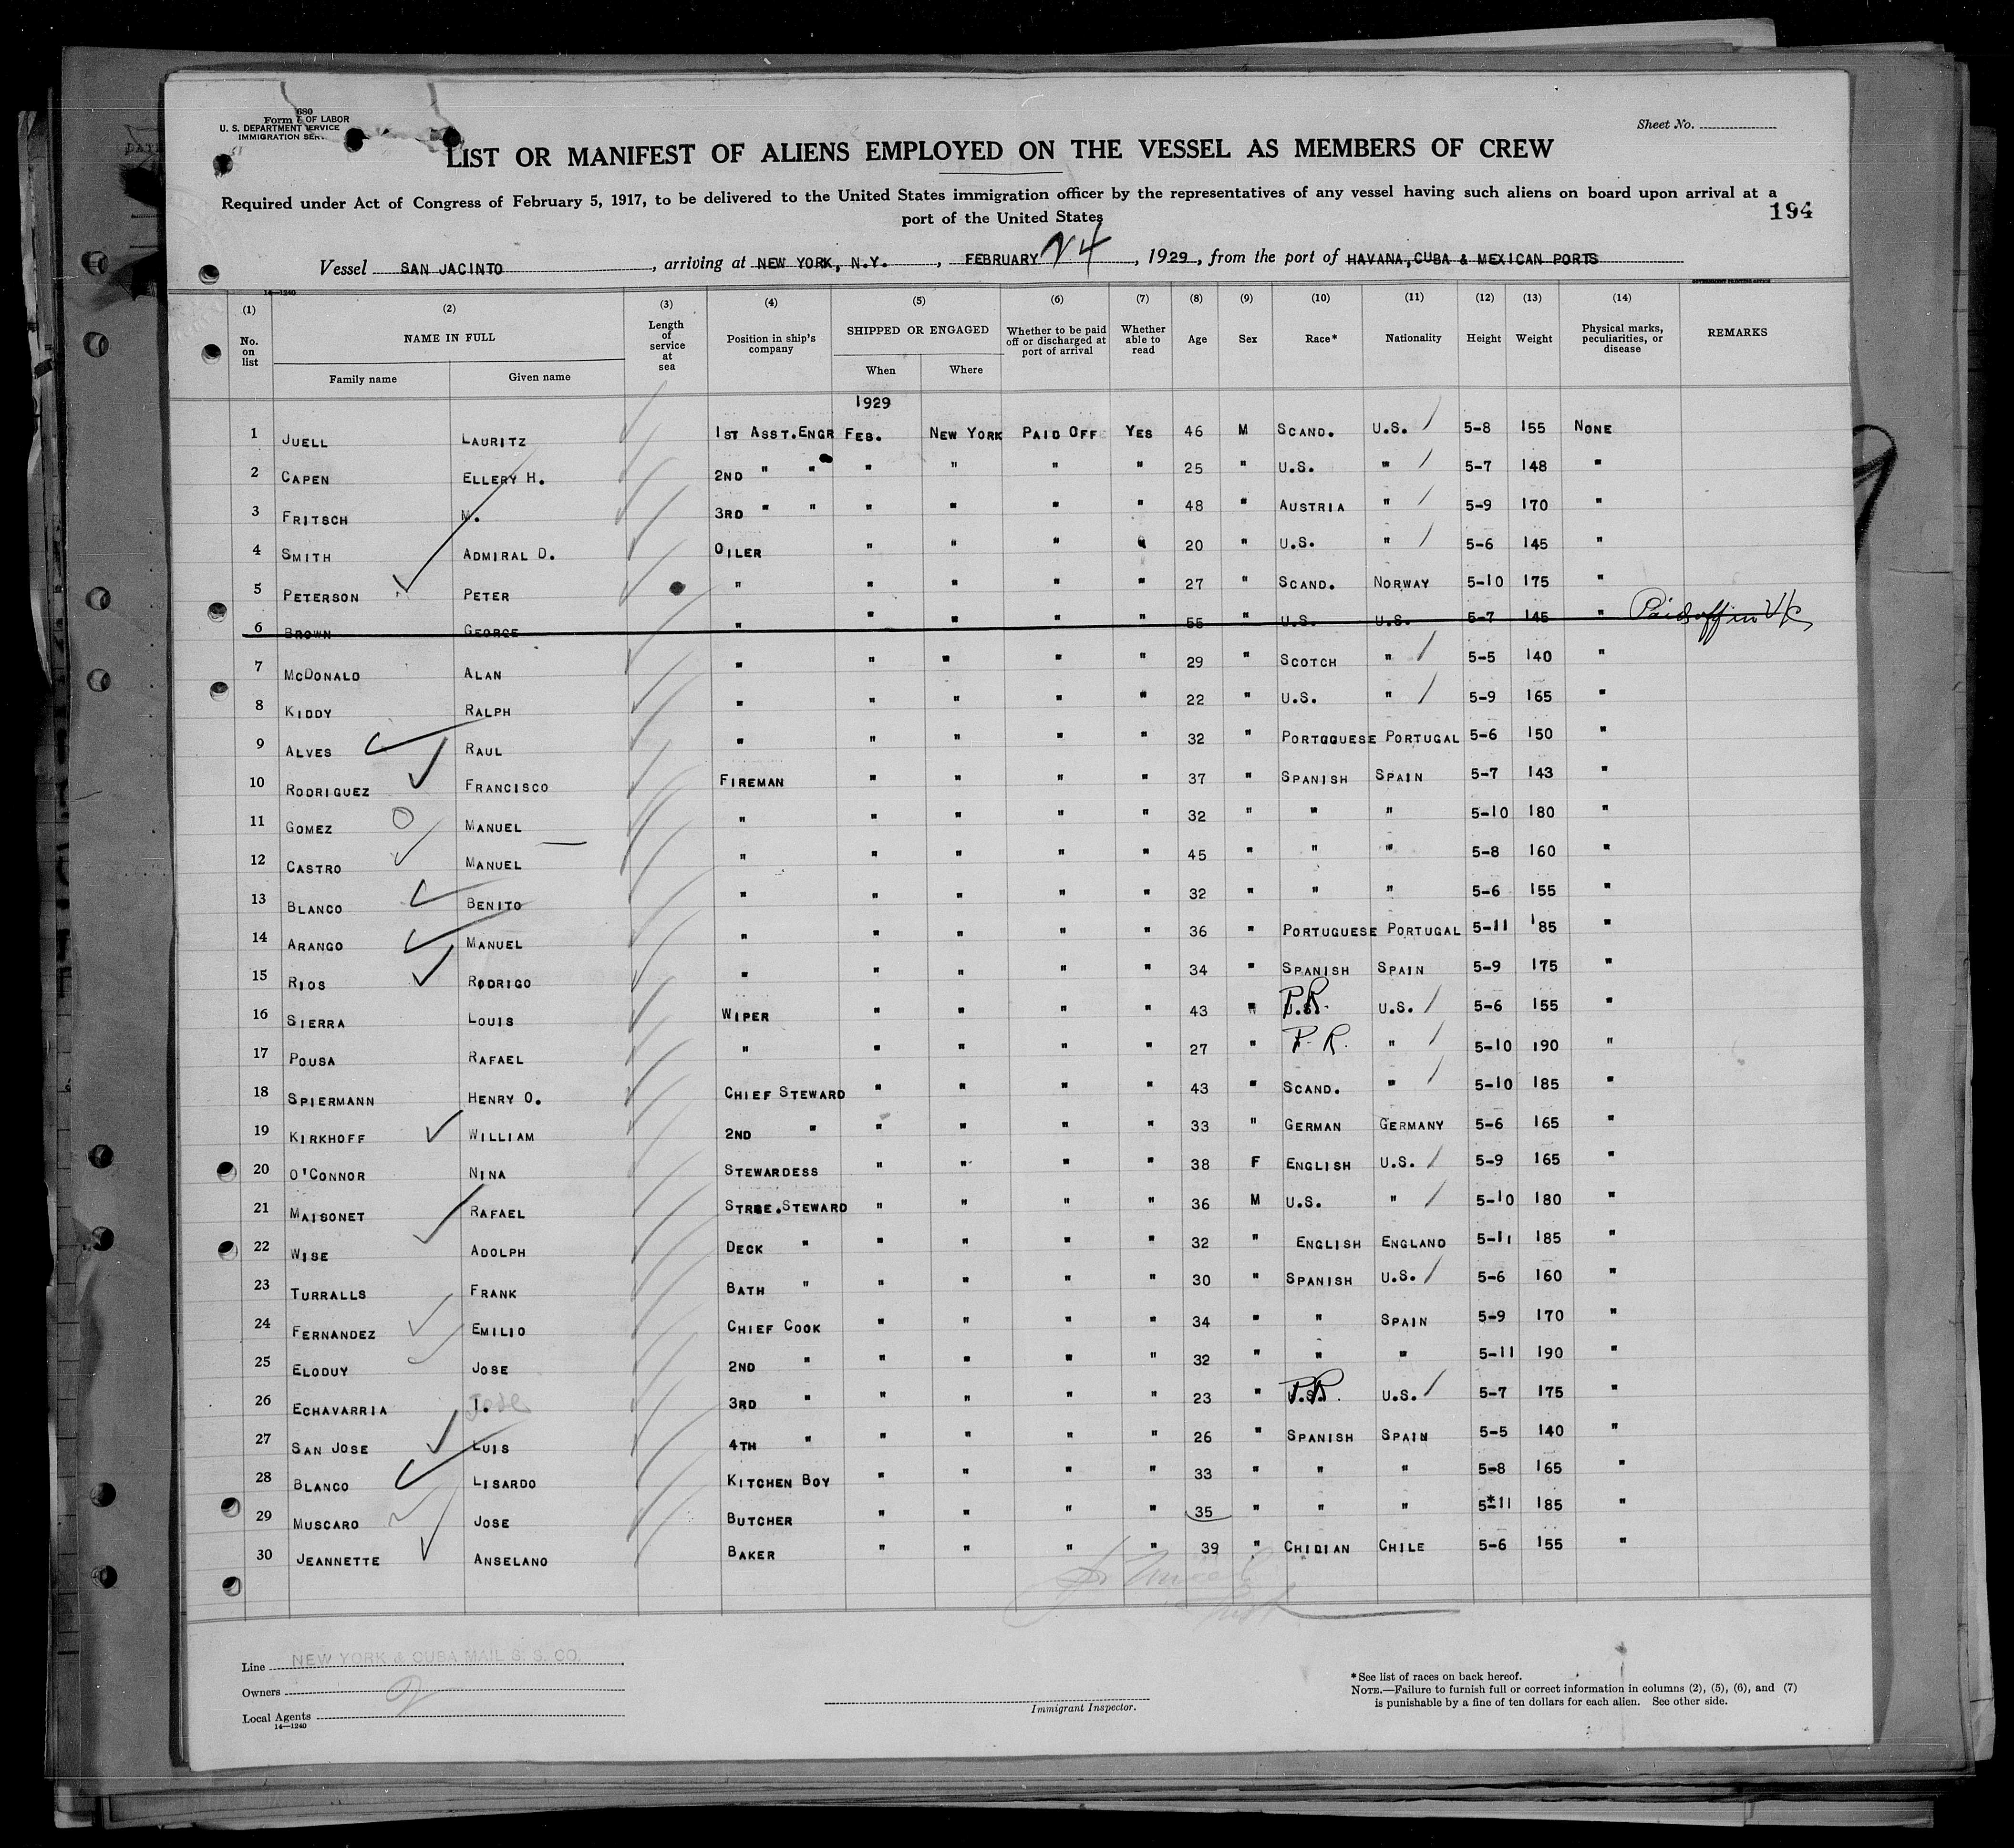 680
Form
U. S. DEPARTMENT OF LABOR
IMMIGRATION SERVICE
Sheet No.
LIST OR MANIFEST OF ALIENS EMPLOYED ON THE VESSEL AS MEMBERS OF CREW
Required under Act of Congress of February 5, 1917, to be delivered to the United States immigration officer by the representatives of any vessel having such aliens on board upon arrival at a
port of the United States
194
Vessel SAN JACINTO, arriving at NEW YORK, N.Y., FEBRUARY 24, 1929, from the port of HAVANA, CUBA & MEXICAN PORTS
14—1240
(1) (2) (3) (4) (5) (6) (7) (8) (9) (10) (11) (12) (13) (14)
No. on list NAME IN FULL Length of service at sea Position in ship's company SHIPPED OR ENGAGED Whether to be paid off or discharged at port of arrival Whether able to read Age Sex Race* Nationality Height Weight Physical marks, peculiarities, or disease REMARKS
Family name Given name When Where
1929
1 JUELL LAURITZ 1ST ASST.ENGR FEB. NEW YORK PAID OFF YES 46 M SCAND. U.S. 5-8 155 NONE
2 CAPEN ELLERY H. 2ND " " " " " " 25 " U.S. " 5-7 148 "
3 FRITSCH M. 3RD " " " " " " 48 " AUSTRIA " 5-9 170 "
4 SMITH ADMIRAL D. OILER " " " " 20 " U.S. " 5-6 145 "
5 PETERSON PETER " " " " " 27 " SCAND. NORWAY 5-10 175 "
6 BROWN GEORGE " " " " " 55 " U.S. U.S. 5-7 145 " Paid off in V/C
7 MCDONALD ALAN " " " " " 29 " SCOTCH " 5-5 140 "
8 KIDDY RALPH " " " " " 22 " U.S. " 5-9 165 "
9 ALVES RAUL " " " " " 32 " PORTGGUESE PORTUGAL 5-6 150 "
10 RODRIGUEZ FRANCISCO FIREMAN " " " " 37 " SPANISH SPAIN 5-7 143 "
11 GOMEZ MANUEL " " " " " 32 " " " 5-10 180 "
12 CASTRO MANUEL " " " " " 45 " " " 5-8 160 "
13 BLANCO BENITO " " " " " 32 " " " 5-6 155 "
14 ARANGO MANUEL " " " " " 36 " PORTUGUESE PORTUGAL 5-11 185 "
15 RIOS RODRIGO " " " " " 34 " SPANISH SPAIN 5-9 175 "
16 SIERRA LOUIS WIPER " " " " 43 " U.S. P.R. U.S. 5-6 155 "
17 POUSA RAFAEL " " " " " 27 " P.R. " 5-10 190 "
18 SPIERMANN HENRY O. CHIEF STEWARD " " " " 43 " SCAND. " 5-10 185 "
19 KIRKHOFF WILLIAM 2ND " " " " " 33 " GERMAN GERMANY 5-6 165 "
20 O'CONNOR NINA STEWARDESS " " " " 38 F ENGLISH U.S. 5-9 165 "
21 MAISONET RAFAEL STRGE.STEWARD " " " " 36 M U.S. " 5-10 180 "
22 WISE ADOLPH DECK " " " " " 32 " ENGLISH ENGLAND 5-11 185 "
23 TURRALLS FRANK BATH " " " " " 30 " SPANISH U.S. 5-6 160 "
24 FERNANDEZ EMILIO CHIEF COOK " " " " 34 " " SPAIN 5-9 170 "
25 ELODUY JOSE 2ND " " " " " 32 " " " 5-11 190 "
26 ECHAVARRIA I. Jose 3RD " " " " " 23 " U.S. P.R. U.S. 5-7 175 "
27 SAN JOSE LUIS 4TH " " " " " 26 " SPANISH SPAIN 5-5 140 "
28 BLANCO LISARDO KITCHEN BOY " " " " 33 " " " 5-8 165 "
29 MUSCARO JOSE BUTCHER " " " " 35 " " " 5*-11 185 "
30 JEANNETTE ANSELANO BAKER " " " " 39 " CHIDIAN CHILE 5-6 155 "
Line NEW YORK & CUBA MAIL S. S. CO.
Owners
Local Agents
14—1240
Immigrant Inspector.
*See list of races on back hereof.
NOTE.—Failure to furnish full or correct information in columns (2), (5), (6), and (7)
is punishable by a fine of ten dollars for each alien. See other side.